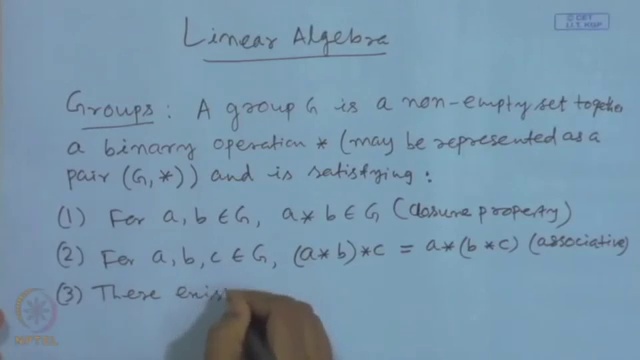 © CET
I.I.T. KGP
Linear Algebra
Groups : A group G is a non-empty set together
a binary operation * (may be represented as a
pair (G, *)) and is satisfying :
(1) For a, b ∈ G, a * b ∈ G (closure property)
(2) For a, b, c ∈ G, (a * b) * c = a * (b * c) (associative)
(3) There exis
NPTEL